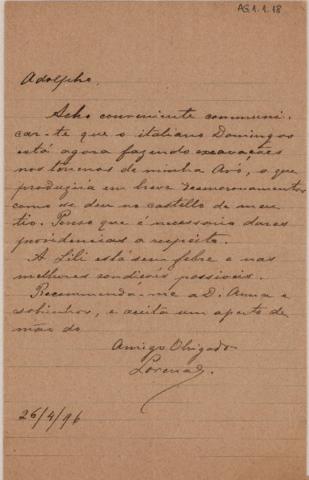 AG.1.1.18
Adolpho.
Acho conveniente communi-
car-te que o italiano Domingos
está agora fazendo excavações
nos terrenos de minha Avó, o que
produzirá em breve desmoronamentos
como se deu no castello de meu
tio. Penso que é necessario dares
providencias a respeito.
A Lili está sem febre e nas
melhores condicões possiveis.
Recommenda-me a D. Anna e
sobinhos, e aceita um aperto de
mão do
Amigo Obrigado
Lorena.
26/4/96